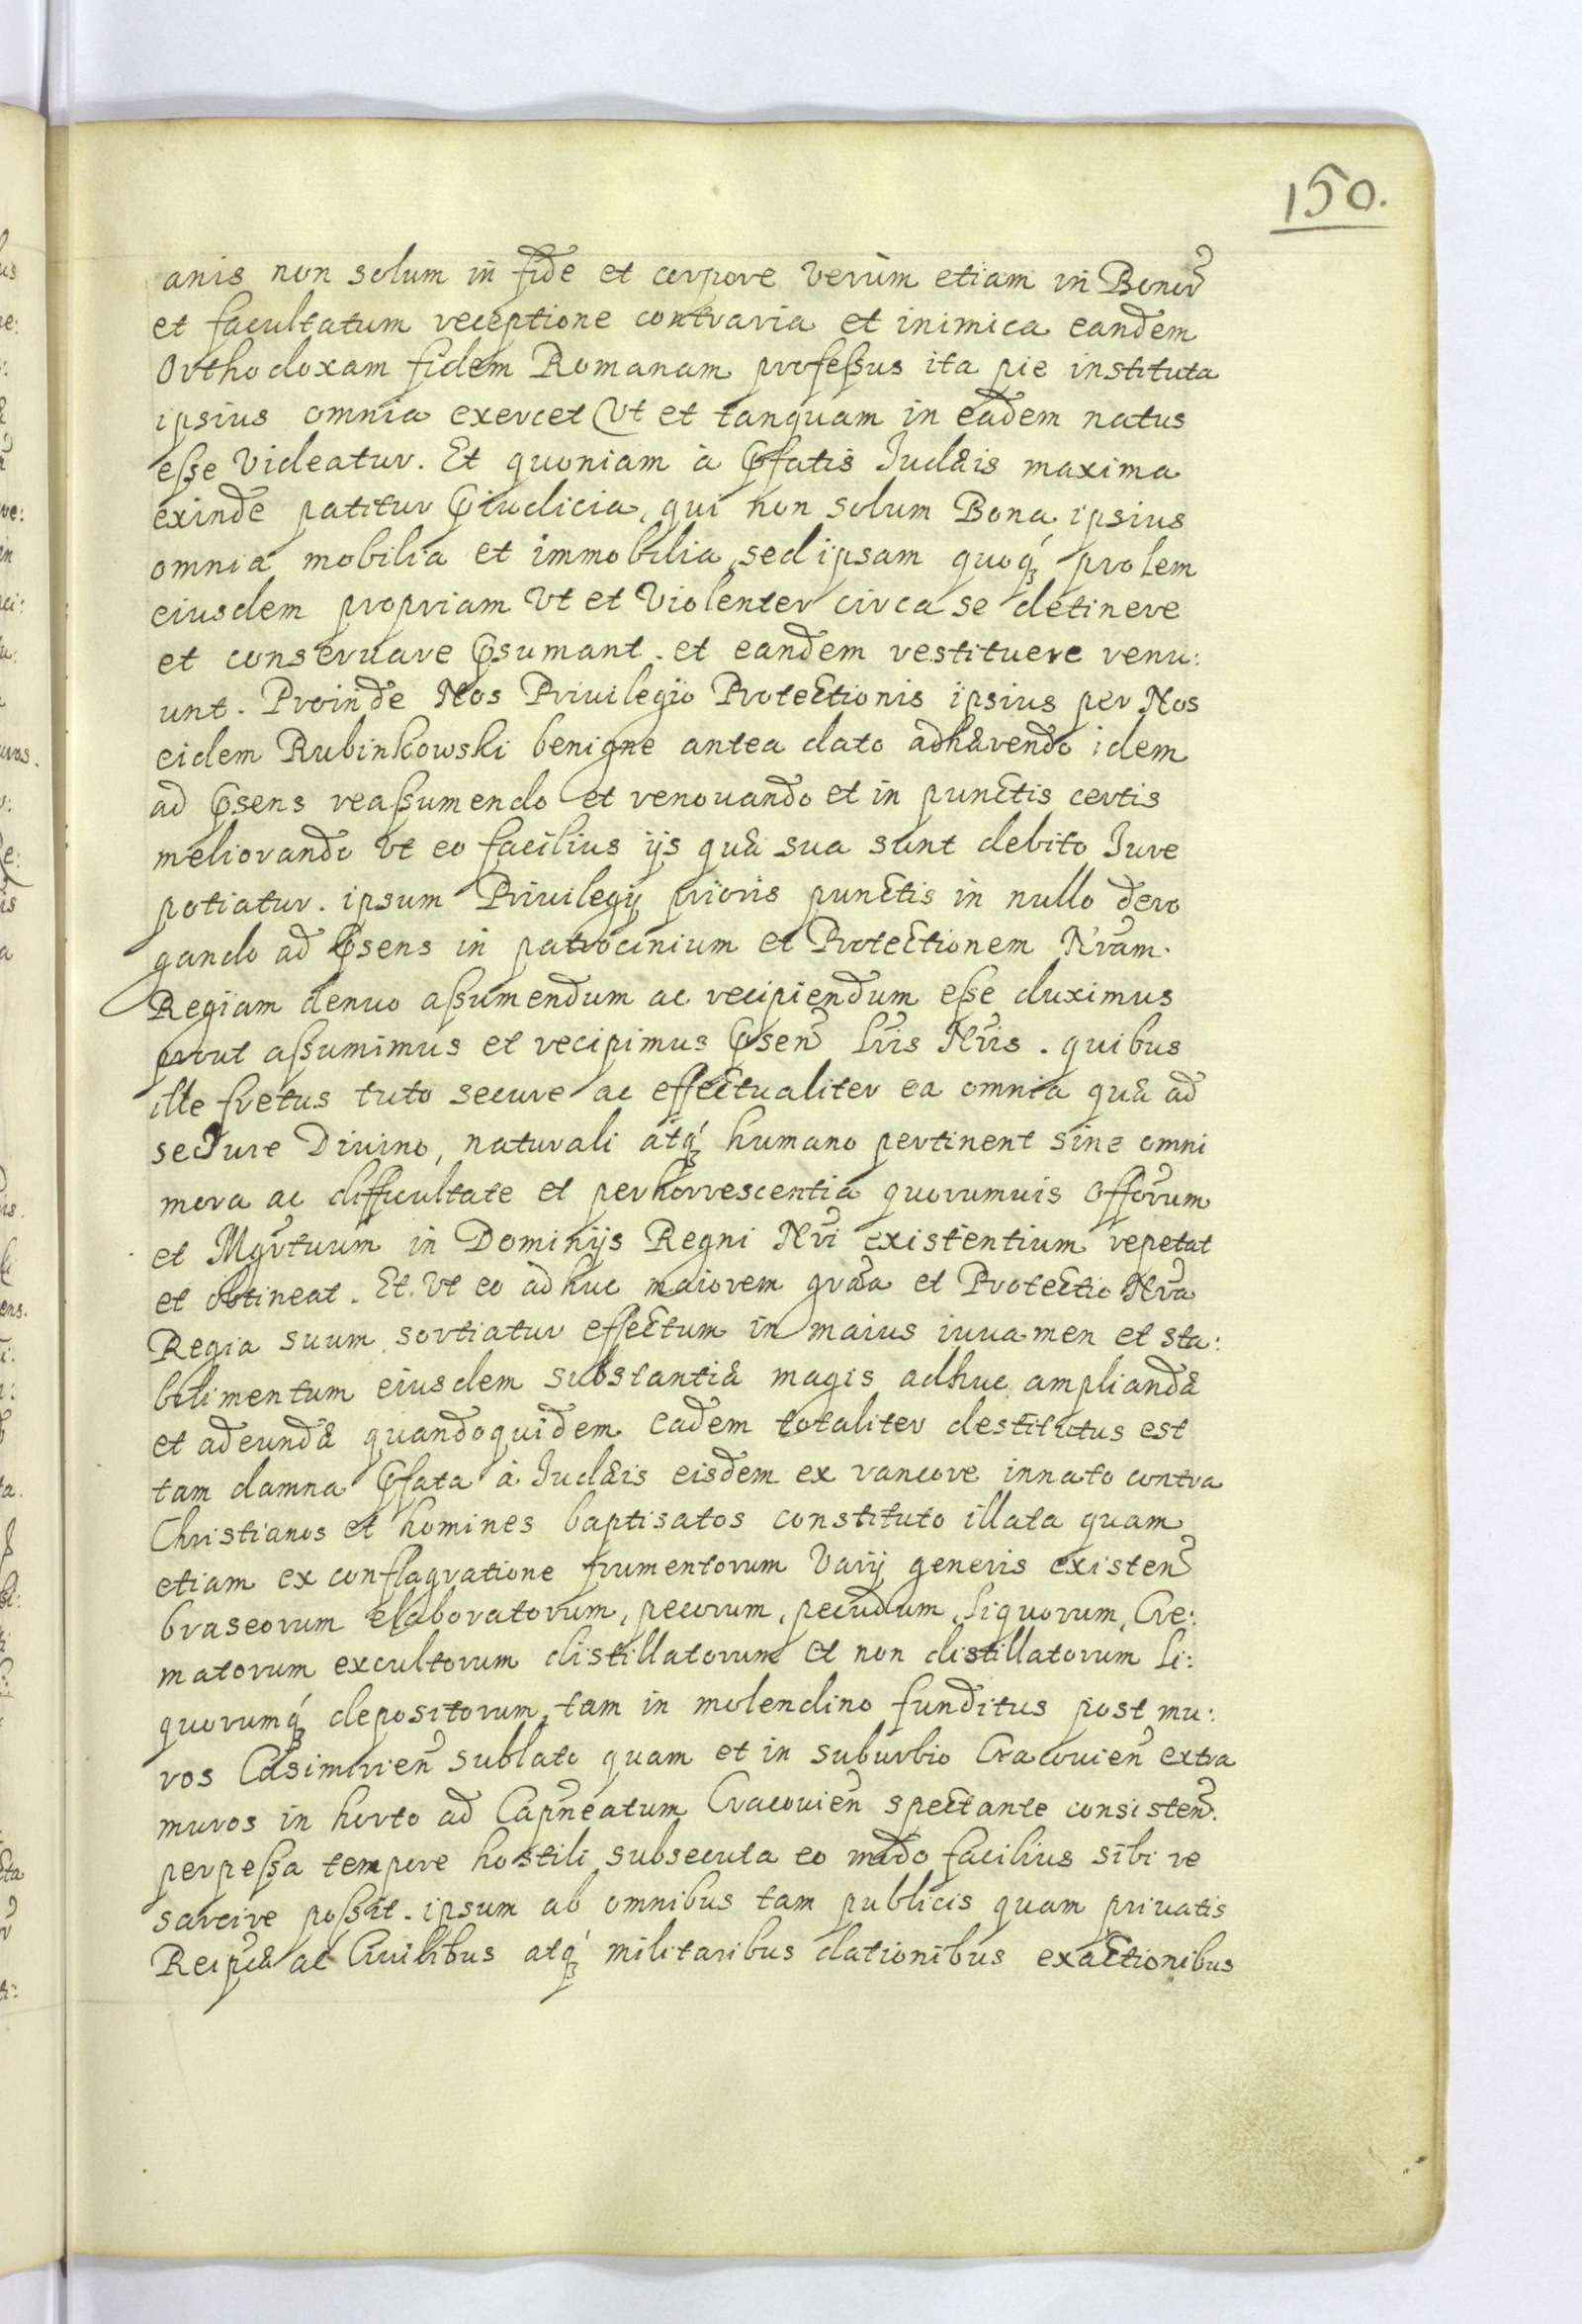 150.
anis non solum in fide et corpore verùm etiam in Bonor̃
et facultatum receptione contraria et inimica eandem
Orthodoxam fidem Romanam professus ita pie instituta
ipsius omnia exercet Vt et tanquam in eadem natus
esse Videatur. Et quoniam à Pfatis Iudæis maxima
exinde patitur Piudicia, qui non solum Bona ipsius
omnia mobilia et immobilia, sed ipsam quoq́ prolem
eiusdem propriam Vt et Violenter circa se detinere
et conseruare Psumant. et eandem restituere renu:
unt. Proinde Nos Priuilegio Protectionis ipsius per Nos
eidem Rubinkowski benigne antea dato adhærendo idem
ad Psens reassumendo et renouando et in punctis certis
meliorando Vt eo facilius ijs quæ sua sunt debito Iure
potiatur. ipsum Priuilegij prioris punctis in nullo dero
gando ad Psens in patrocinium et Protectionem Nr̃am.
Regiam denuo assumendum ac recipiendum esse duximus
prout assumimus et recipimus Psen̄ Lr̃is Nr̃is. quibus
ille fretus tuto secure ac effectualiter ea omnia quæ ad
se Iure Diuino, naturali atq́ humano pertinent sine omni
mora ac difficultate et perhorrescentia quorumuis Offõrum
et Mgr̃tuum in Dominijs Regni Nr̃i existentium repetat
et obtineat. Et Vt eo adhuc maiorem gr̃aa et Protectio Nr̃a
Regia suum sortiatur effectum in maius iuuamen et sta:
bilimentum eiusdem substantiæ magis adhuc ampliandæ
et adeundæ quandoquidem eadem totaliter destitutus est
tam damna Pfata à Iudæis eisdem ex rancore innato contra
Christianos et homines baptisatos constituto illata quam
etiam ex conflagratione frumentorum Varij generis existen̄
braseorum elaboratorum, pecorum, pecudum, liquorum, Cre:
matorum excultorum distillatorum et non distillatorum li:
quorumq́ depositorum, tam in molendino funditus post mu:
ros Casimirien̄ sublato quam et in suburbio Cracouien̄ extra
muros in horto ad Capñeatum Cracouien̄ spectante consisten̄.
perpessa tempore hostili subsecuta eo modo facilius sibi re
sarcire possit. ipsum ab omnibus tam publicis quam priuatis
Reip̃cæ ac Ciuilibus atq́ militaribus dationibus exactionibus